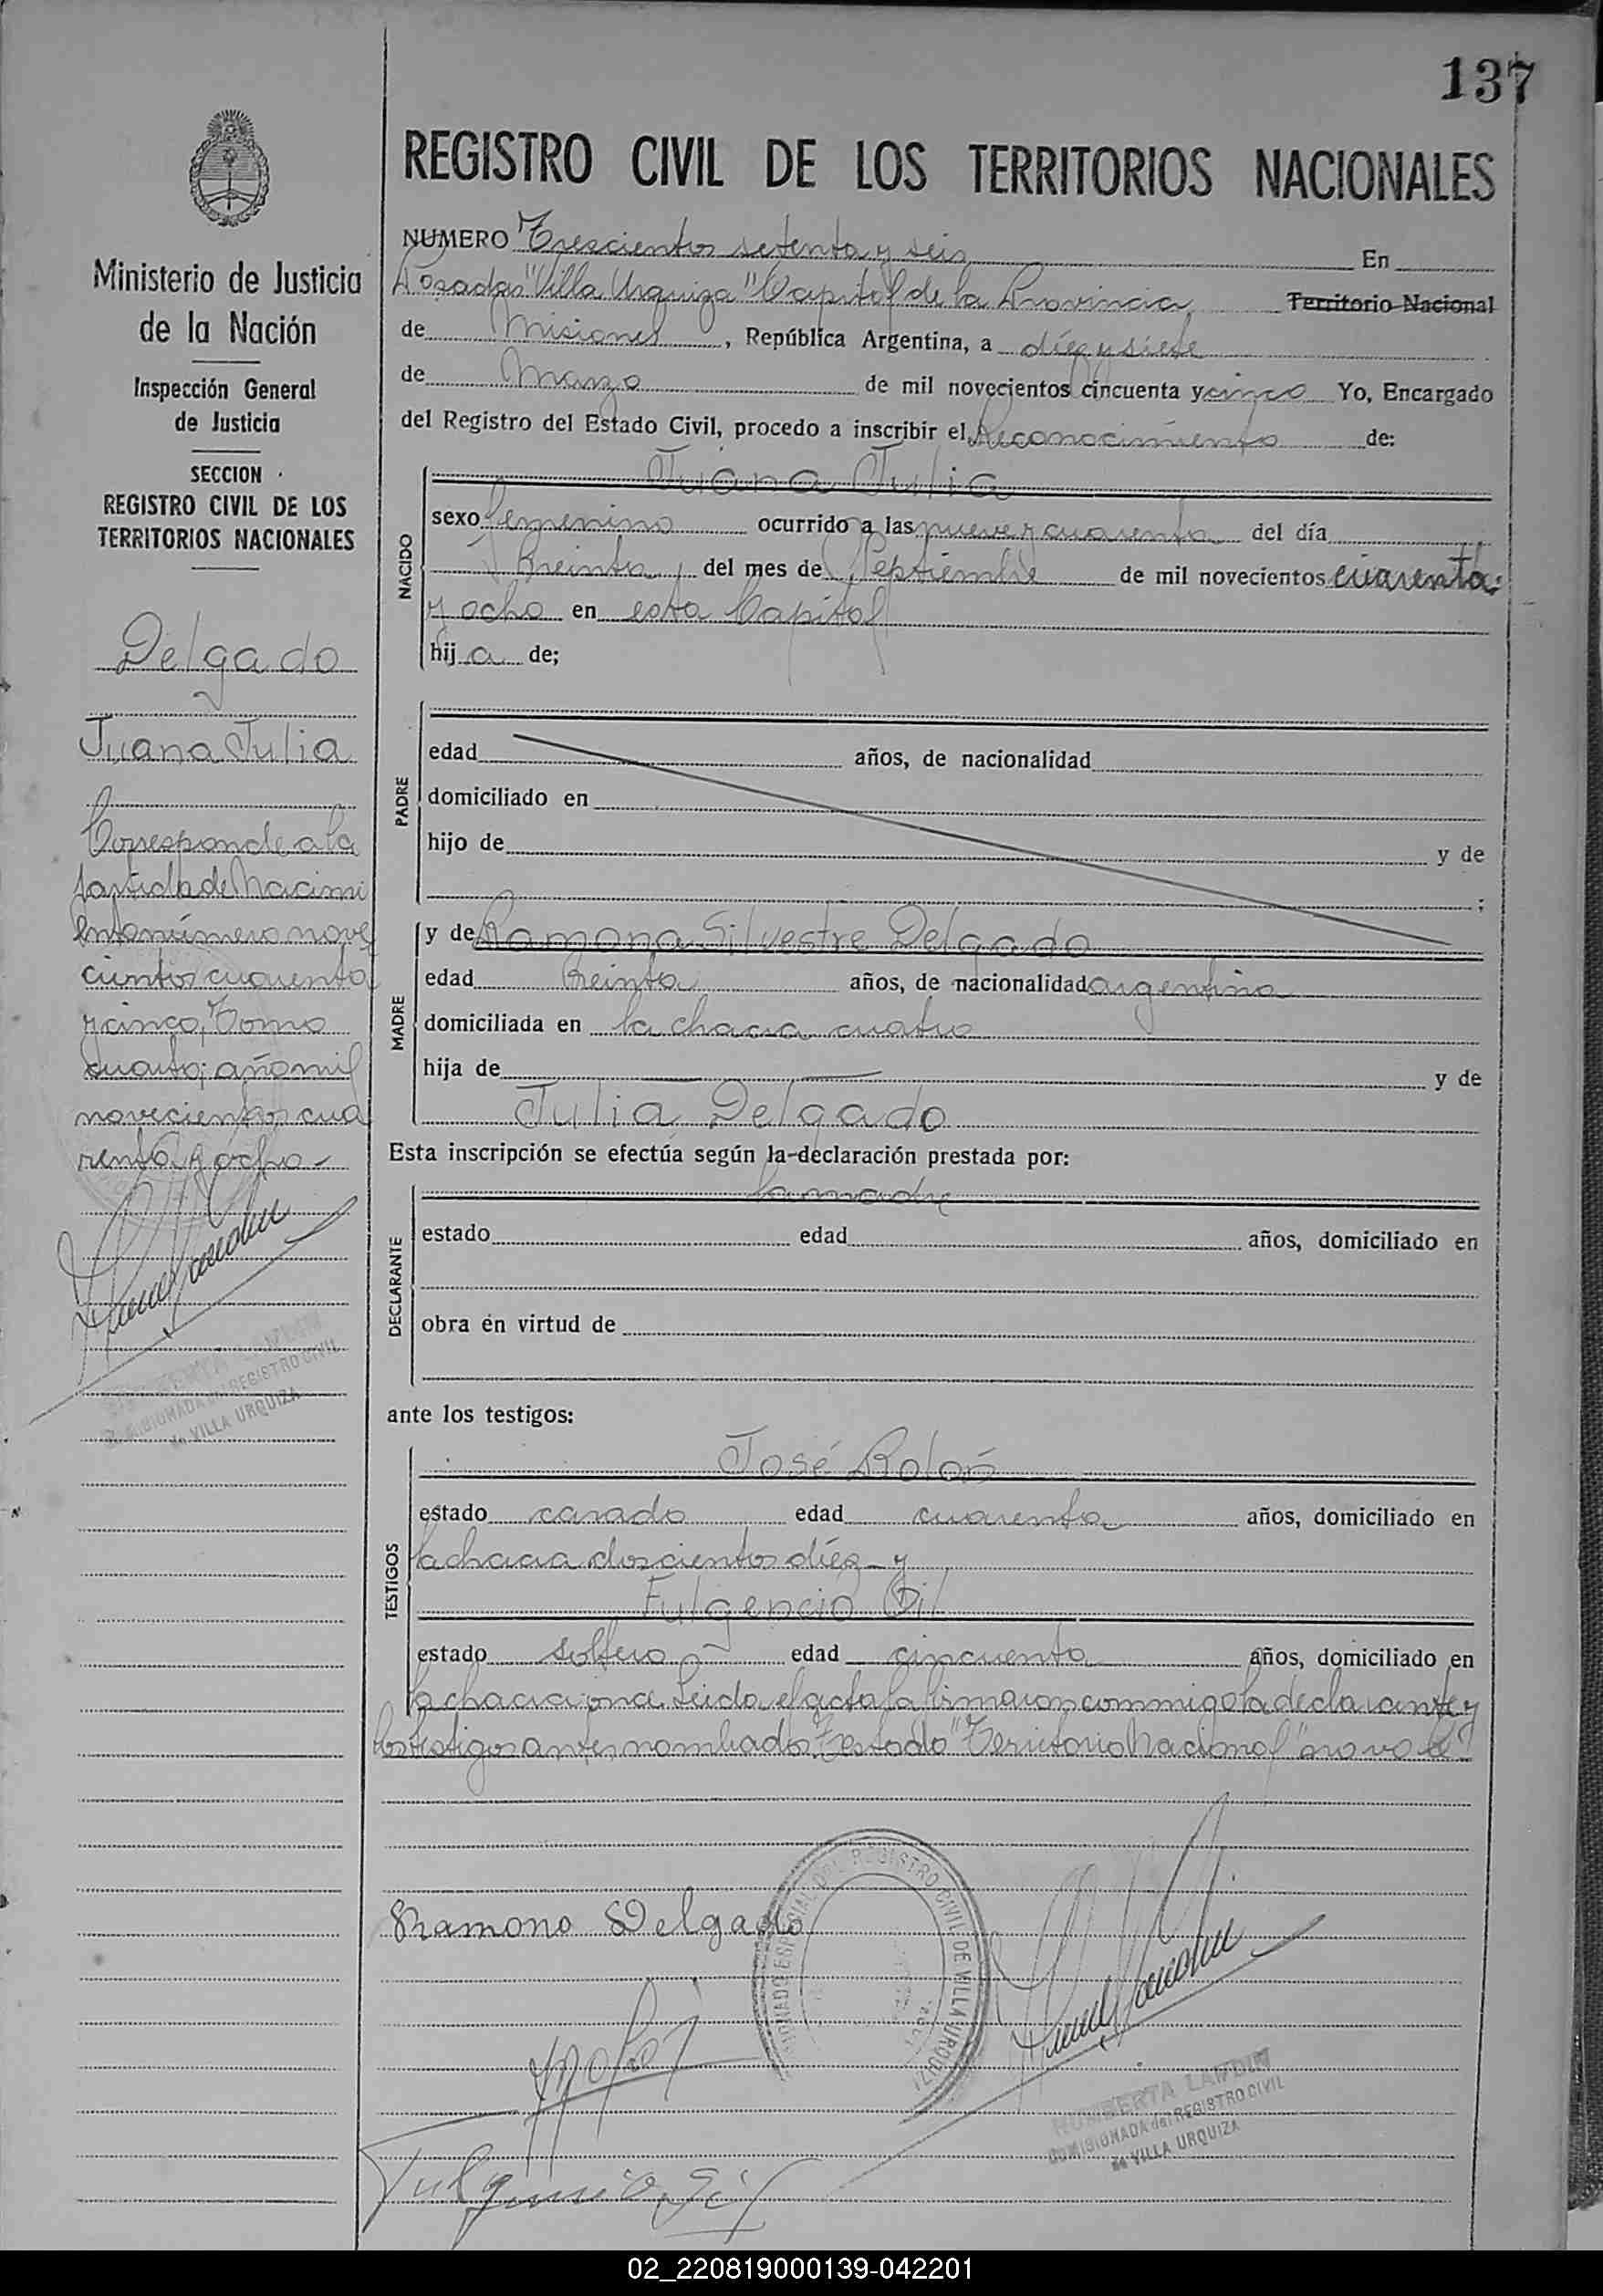 137
REGISTRO CIVIL DE LOS TERRITORIOS NACIONALES
Ministerio de Justicia
de la Nación
Inspección General
de Justicia
SECCION
REGISTRO CIVIL DE LOS
TERRITORIOS NACIONALES
Delgado
Juana Julia
Corresponde a la
partida de Nacimi
ento número nove
cientos cuarenta
y cinco, Tomo
cuarto; año mil
novecientos cua
renta y ocho-
COMISIONADA del REGISTRO CIVIL
de VILLA URQUIZA
NUMERO Trescientos setenta y seis En
Posadas "Villa Urquiza" Capital de la Provincia Territorio Nacional
de Misiones, República Argentina, a diez y siete
de Marzo de mil novecientos cincuenta y cinco Yo, Encargado
del Registro del Estado Civil, procedo a inscribir el Reconocimiento de:
NACIDO
Juana Julia
sexo femenino ocurrido a las nueve y cuarenta del día
Treinta del mes de Septiembre de mil novecientos cuarenta
y ocho en esta Capital
hija de;
PADRE
edad años, de nacionalidad
domiciliado en
hijo de y de
;
MADRE
y de Ramona Silvestre Delgado
edad treinta años, de nacionalidad argentina
domiciliada en la chacra cuatro
hija de y de
Julia Delgado
Esta inscripción se efectúa según la declaración prestada por:
DECLARANTE
la madre
estado edad años, domiciliado en
obra en virtud de
ante los testigos:
TESTIGOS
José Rolón
estado casado edad cuarenta años, domiciliado en
la chacra doscientos diez - y
Fulgencio Gil
estado soltero edad cincuenta años, domiciliado en
la chacra once. Leida el acta la firmaron conmigo la declarante y
los testigos antes nombrados. Testado "Territorio Nacional" no vale"
Ramona Delgado
COMISIONADO ESPECIAL DEL REGISTRO CIVIL DE VILLA URQUIZA
HUMBERTA LANDIN
COMISIONADA del REGISTRO CIVIL
de VILLA URQUIZA
Fulgencio Gil
02_220819000139-042201